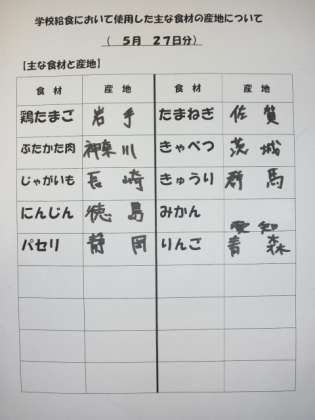 学校給食において使用した主な食材の産地について
( 5月 27日分)
【主な食材と産地】
食材 産地 食材 産地
鶏たまご 岩手 たまねぎ 佐賀
ぶたかた肉 神奈川 きゃべつ 茨城
じゃがいも 長崎 きゅうり 群馬
にんじん 徳島 みかん 愛知
パセリ 静岡 りんご 青森